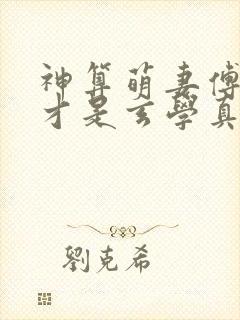 神算萌妻傅
才是玄學真
劉克希